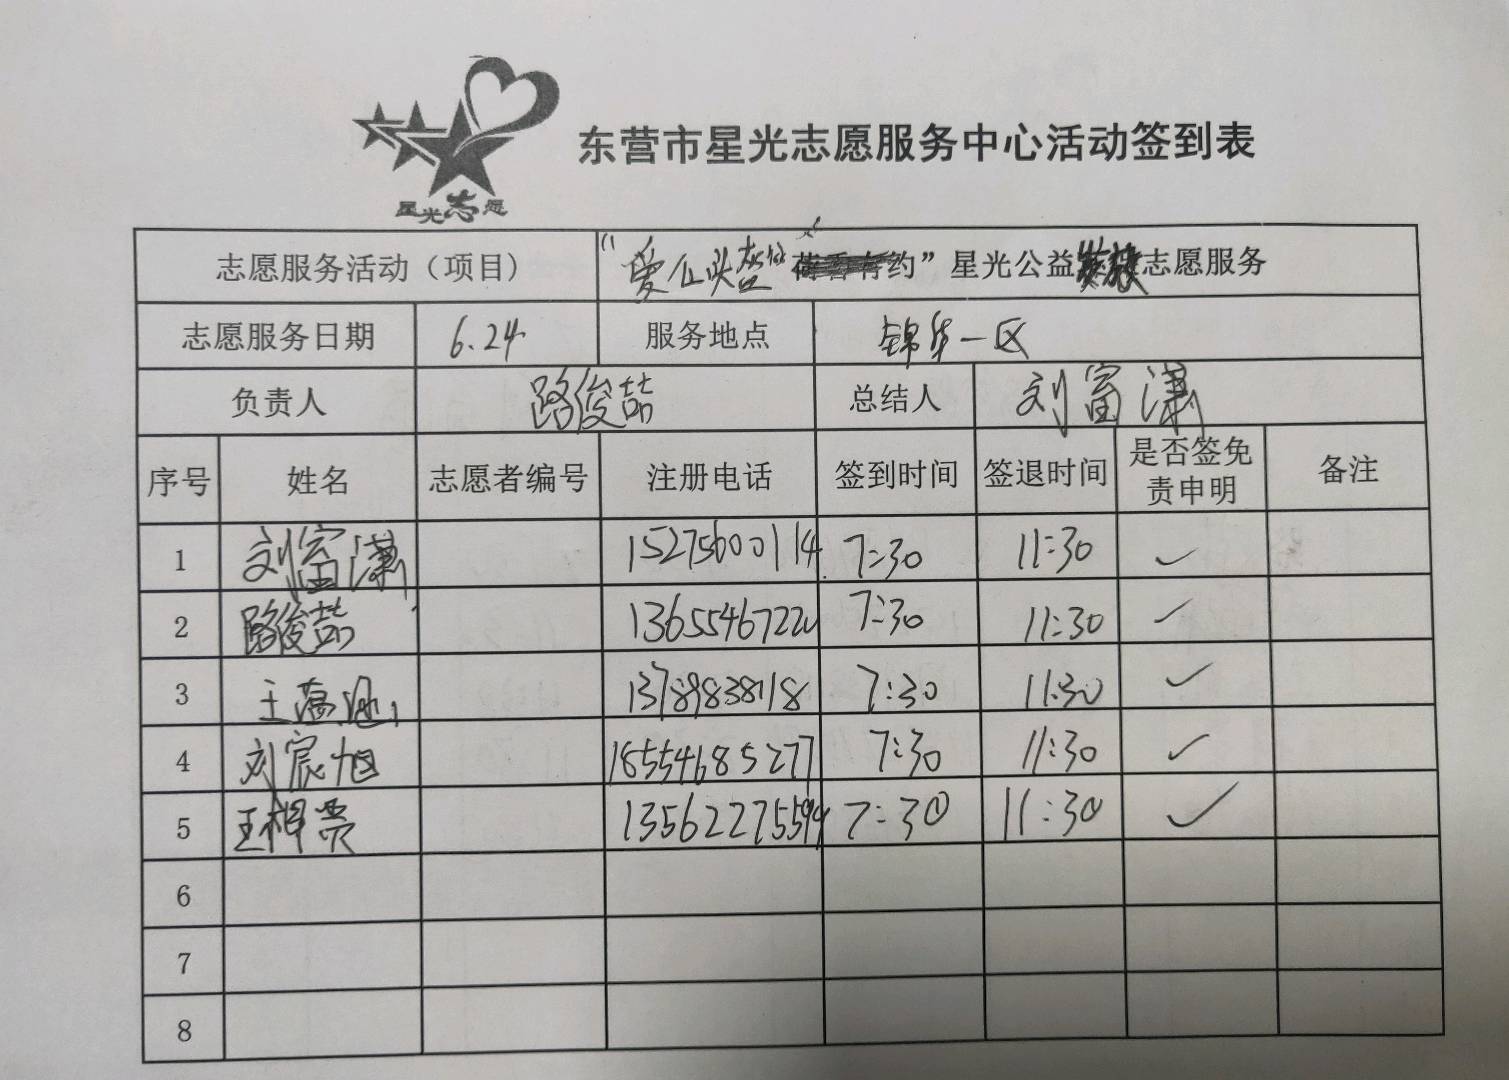 星光志愿
东营市星光志愿服务中心活动签到表
志愿服务活动（项目） “爱心头盔 约”星光公益 志愿服务
志愿服务日期 6.24 服务地点 锦华一区
负责人 路俊喆 总结人 刘富潇
序号 姓名 志愿者编号 注册电话 签到时间 签退时间 是否签免责申明 备注
1 刘富潇 15275600114 7:30 11:30 ✓
2 路俊喆 7:30 11:30 ✓
3 王蕴涵 7:30 11:30 ✓
4 刘宸旭 18554685277 7:30 11:30 ✓
5 王梓 13562275594 7:30 11:30 ✓
6
7
8